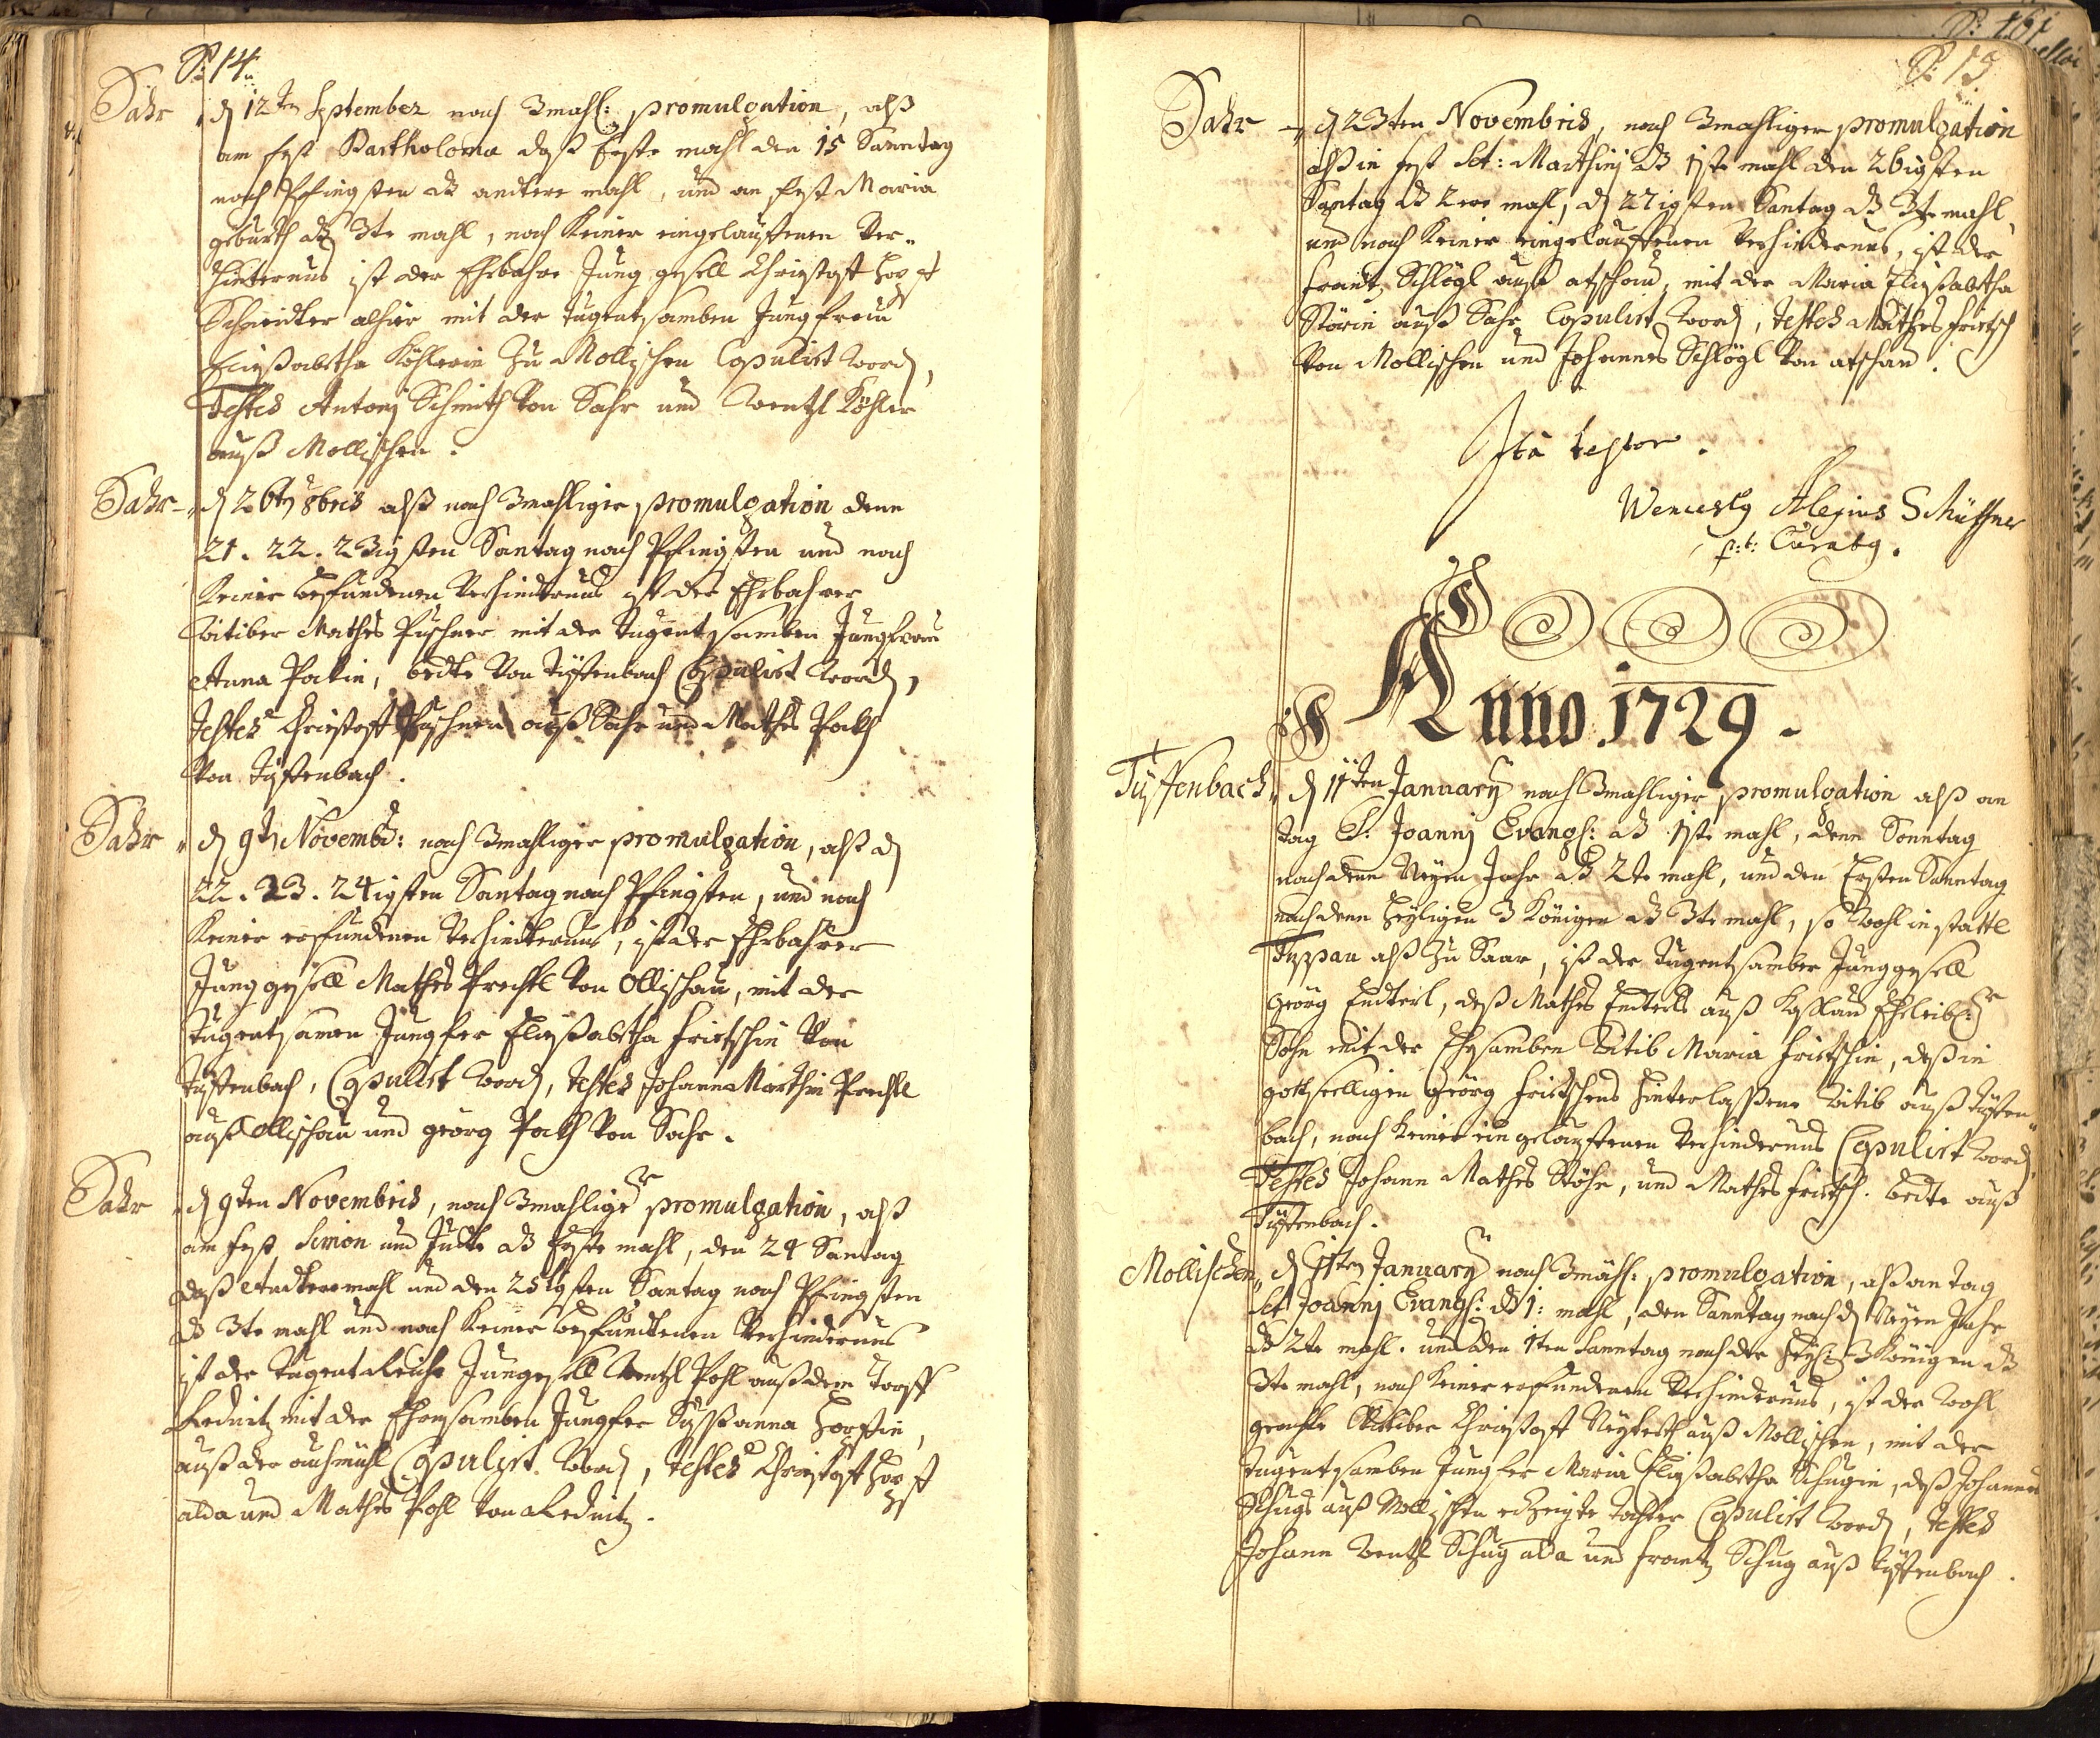 P: 14.
Sahr d 12ten September nach 3mahl: promulgation, alß
am fest Bartholoma daß Erste mahl den 15 Sonntag
nach Pfingsten dß andere mahl, und an fest Maria
geburth dß 3te mahl, nach Keiner eingelauffenen Ver-
hinternus ist der Ehrbahre Jung gesell Christoff
Schneider alhier mit der tugentsamben Jungfrau
Elißabetha Köhlerin zu Mollischen Copulirt word,
Testes Antonj Schmith von Sahr und Wentzl Köhler
auß Mollischen.
Sahr d 26t 8bris alß nach 3mahliger promulgation denn
21. 22. 23igsten Sontag nach Pfingsten und nach
Keiner befundenen Verhindernus ist der Ehrbahrer
Witiber Mathes Puschner mit der tugentsamben Jungfrau
Anna Patin, bedte von Tyffenbach Copulirt word,
Testes Christoff Puschner auß Sahr und Mathes Path
von Tyffenbach.
Sahr d 9t Novemb: nach 3mahliger promulgation, alß d
22. 23. 24igsten Sontag nach Pfingsten, und nach
Keiner erfundenen Verhindernus, ist der Ehrbahrer
Jung gesell Mathes Prechtl von Ollischau, mit der
tugentsamen Jungfer Elißabetha Fritschin von
Tyffenbach, Copulirt word, Testes Johann Marthin Prechtl
auß Ollischau und georg Path von Sahr.
Sahr d 9ten Novembris, nach 3mahliger promulgation, alß
am fest Simon und Judte dß Erste mahl, den 24 Sontag
daß Andteremahl und den 25igsten Sontag nach Pfingsten
dß 3te mahl und nach Keiner befundtenen Verhindernus
ist der tugentReiche Jungesell Wentzl Pohl auß dem Dorff
Rednitz mit der Ehrsamben Jungfer Sussanna
auß der Copulirt word, Testes Christoff
alda und Mathes Pohl von Rednitz.
P: 15
Sahr d 23ten Novembris, nach 3mahliger promulgation
alß in fest Sct: Marthinj dß 1ste mahl den 26igsten
Sontag dß 2te mahl, d 27igsten Sontag dß 3te mahl
und nach Keiner eingelauffenen Verhindernus, ist der
Frantz Schlögl auß atschau, mit der Maria Elißabetha
Störin auß Sahr Copulirt word, Testes Mathes Fritsch
von Mollischen und Johannes Schlögl von atschau.
Ita testor.
Wencesly Alexius Schüttner
p:t: Curatg.
Anno 1729.
Tüffenbach d 11ten January nach 3mahliger promulgation alß an
tag S: Joannj Evangl: dß 1ste mahl, denn Sonntag
nach denn Neyen Jahr dß 2te mahl, und den Ersten Sonntag
nach denn Heyligen 3 Königen dß 3te mahl, so wohl in stattl
Duppau alß zu Saar, ist der tugentsamber Junggesell
georg Endterl, deß Mathes Endterls auß Koslau Eheleibl:
Sohn mit der Ehrsamben Witib Maria Fritschin, deß in
gottseelligen georg Fritschens hinterlassene Witib auß Tyffen-
bach, nach Keiner eingelauffenen Verhindernus Copulirt word,
Testes Johann Mathes Stöhr, und Mathes Fritsch. bedte auß
Tyffenbach.
Mollischen d 11ten January nach 3mahl: promulgation, alß an tag
Sct Joannj Evangl: dß 1: mahl, den Sonntag nach d Neyen Jahr
dß 2te mahl. und den 1ten Sonntag nach der Heyl: 3 Königen dß
3te mahl, nach Keiner erfundenen Verhindernus, ist der wohl
geachte Wittiber Christoff auß Mollischen, mit der
tugentsamben Jungfer Maria Elißabetha Schugin, deß Johannes
Schugs auß Mollischen tochter Copulirt word, Testes
Johann Wentzl Schug alda und Frantz Schug auß Tyffenbach.